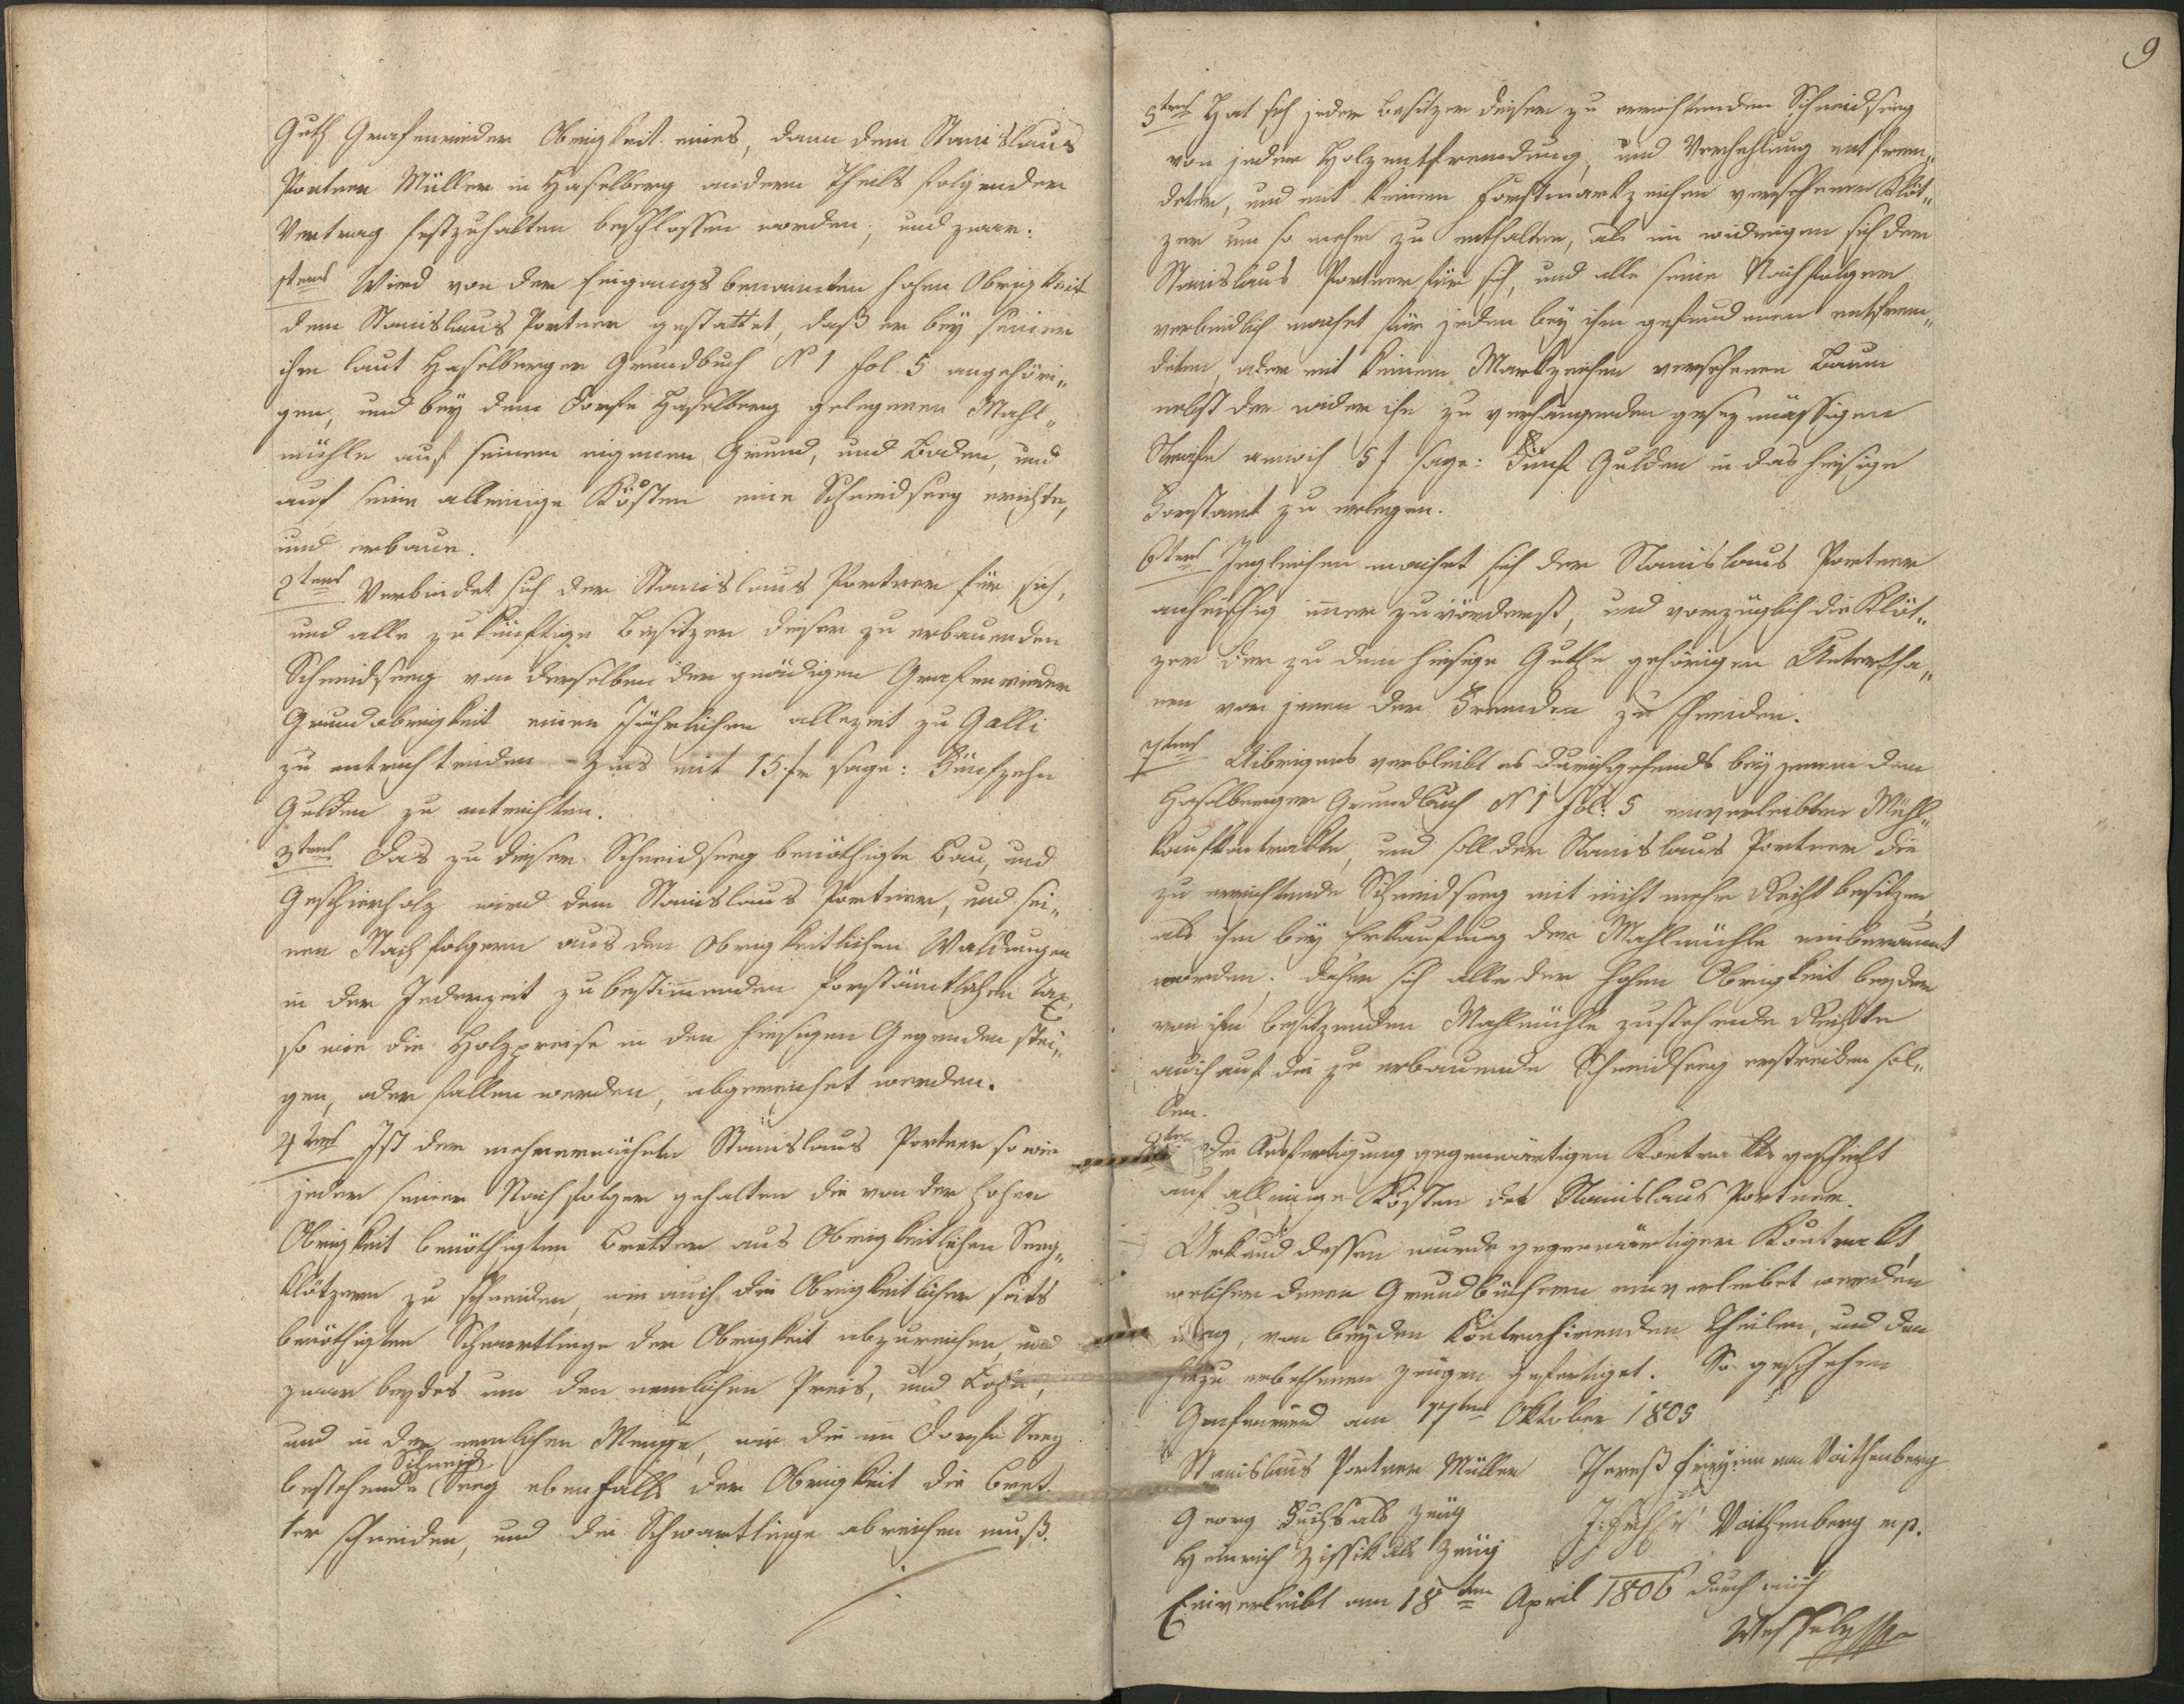 Guth Grafenrieder Obrigkeit eines, dann dem Stanislaus
Portner Müller in Haselberg andern Theils folgender
Vertrag festzuhalten beschlossen worden; und zwar:
1tens Wird von der Eingangs benannten hohen Obrigkeit
dem Stanislaus Portner gestattet, daß er bey seiner
ihm laut Haselberger Grundbuch N 1 fol. 5 angehöri„
gen, und bey dem Dorfe Haselberg gelegenen Mahl„
mühle auf seinem eigenen Grund, und Boden, und
auf seine alleinige Kösten eine Schneidseeg erichte,
und erbaue.
2tens Verbindet sich der Stanislaus Portner für sich,
und alle zukünftige Besitzer dieser zu erbauenden
Schneidseeg von derselben der gnädigen Grafenrieder
Grundobrigkeit einen Jährlichen allezeit zu Galli
zu entrichtenden Zins mit 15 fr sage: Fünfzehn
Gulden zu entrichten.
3tens Das zu dieser Schneidseeg benöthigte Bau, und
Geschierholz wird dem Stanislaus Portner, und sei„
nen Nachfolgern aus den Obrigkeitlichen Waldungen
in der Jederzeit zu bestimmenden forstämtlichen Tax,
so wie die Holzpreise in den hiesigen Gegenden stei„
gen, oder fallen werden, abgereichet werden.
4tens Ist der mehrerwähnte Stanislaus Portner so wie
jeder seiner Nachfolger gehalten die von der hohen
Obrigkeit benöthigten Bretter aus Obrigkeitlichen Seeg„
klötzern zu schneiden, wie auch die Obrigkeitlicher seits
benöthigten Schwartlinge der Obrigkeit abzureichen, und
zwar beydes um den nemlichen Preis, und Lohn,
und in der nemlichen Menge, wie die im Dorfe Seeg
Schneid
bestehende Seeg ebenfalls der Obrigkeit die Bret„
ter schneiden, und die Schwartlinge abreichen muß.
9
5tens Hat sich jeder Besitzer dieser zu errichtenden Schneidseeg
von jeder Holzentfremdung, und Verhehlung entfrem„
deter, und mit keinem Forstmarkzeichen versehenen Klöt„
zer um so mehr zu enthalten, als im widrigen sich der
Stanislaus Portner für sich, und alle seine Nachfolger
verbindlich machet für jeden bey ihm gefundenen entfrem„
deten, oder mit keinem Markzeichen versehenen Baum
nebst der wider ihn zu verhängenden gesezmässigen
Strafe annoch 5 f sage: Fünf Gulden in das hiesige
Forstamt zu erlegen.
6tens Ingleichen machet sich der Stanislaus Portner
anheischig immer zuvörderst, und vorzüglich die Klöt„
zer der zu dem hiesigen Guthe gehörigen Untertha„
nen vor jenen der Fremden zu schneiden.
7tens Uibrigens verbleibt es durchgehends bey jenem dem
Haselberger Grundbuch N 1 fol: 5 einverleibten Mühl„
kaufkontrakte, und soll der Stanislaus Portner die
zu errichtende Schneidseeg mit nicht mehr Recht besitzen,
als ihm bey Erkaufung der Mahlmühle einberaumt
worden. daher sich alle der hohen Obrigkeit bey der
von ihm besitzenden Mahlmühle zustehende Rechte
auch auf die zu erbauende Schneidseeg erstrecken sol„
len.
8tens Die Ausfertigung gegenwärtigen Kontrakts geschieht
auf alleinige Kösten des Stanislaus Portner.
Urkund dessen wurde gegenwärtiger Kontrakt,
welcher denen Grundbüchern einverleibet werden
mag, von beyden Kontrahirenden Theilen, und den
hiezu erbethenen Zeugen gefertiget. So geschehen
Grafenried am 17ten Oktober 1805
Stanislaus Portner Müller Theress Freyinn von Voithenberg
Georg Fuchs als Zeüg
Voithenberg mp.
Heinrich Zissik als Zeüg
Einverleibt am 18ten April 1806 durch mich